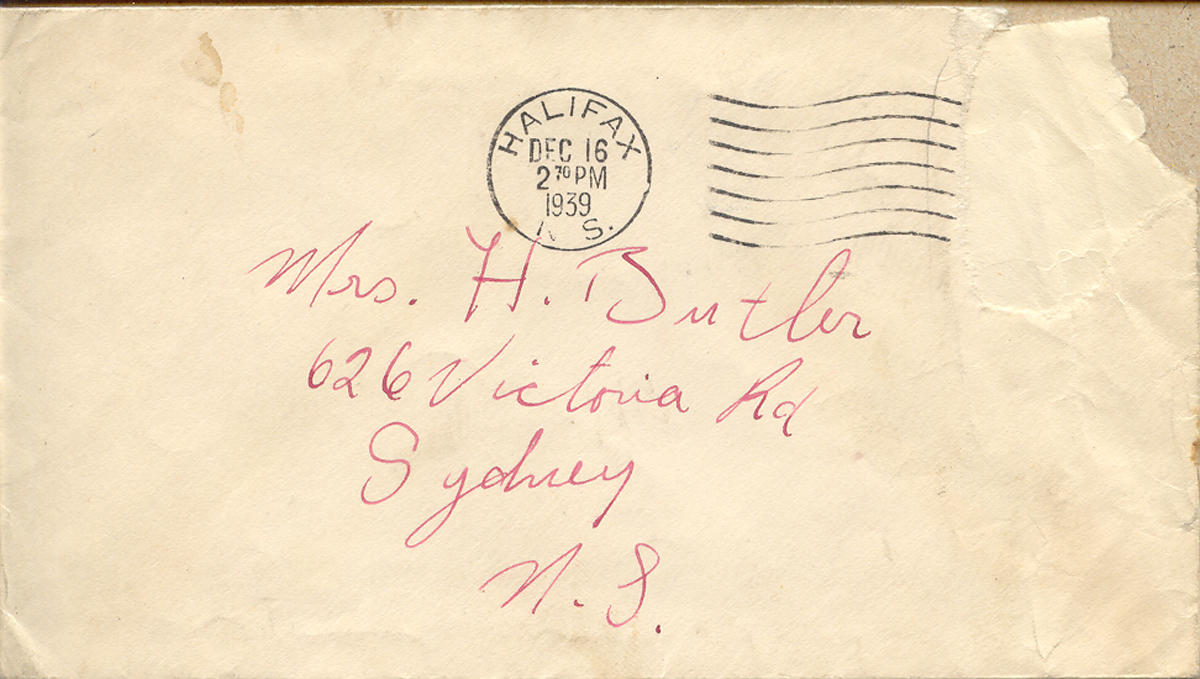 HALIFAX
DEC 16
2 30 PM
1939
N S.
Mrs. H. Butler
626 Victoria Rd
Sydney
N. S.